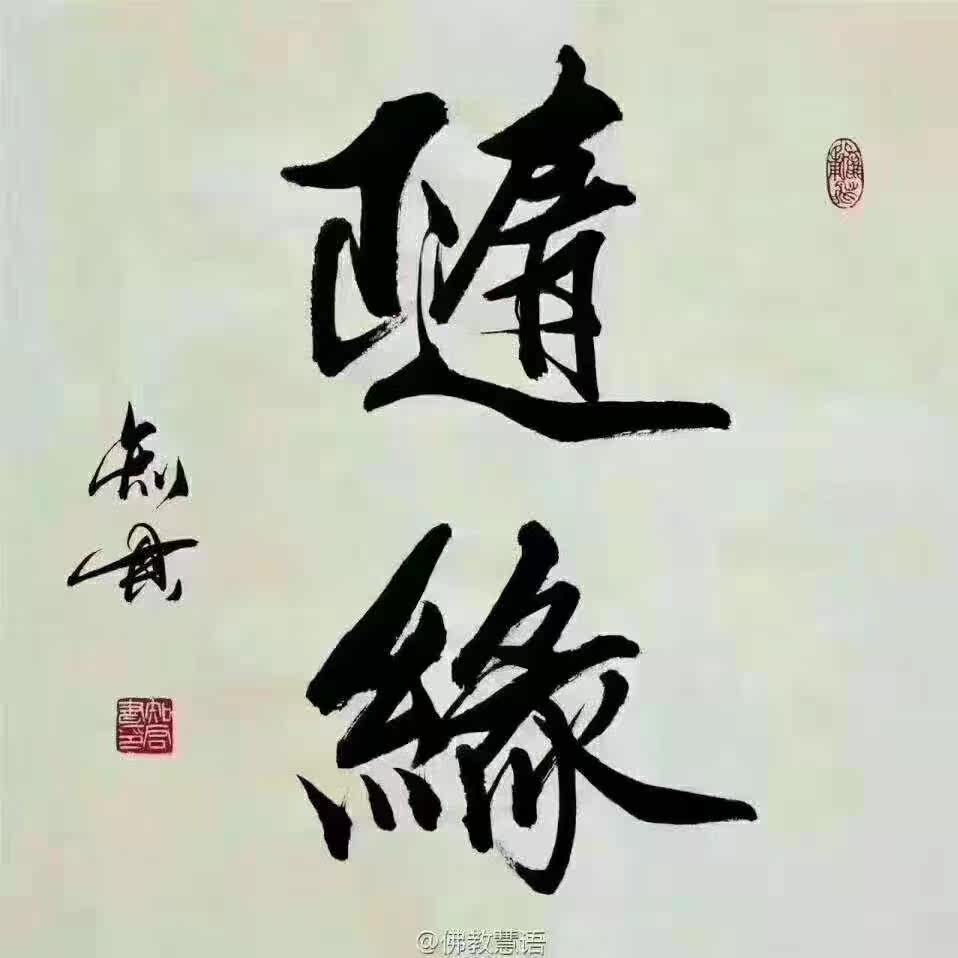 隨緣
@佛教慧语